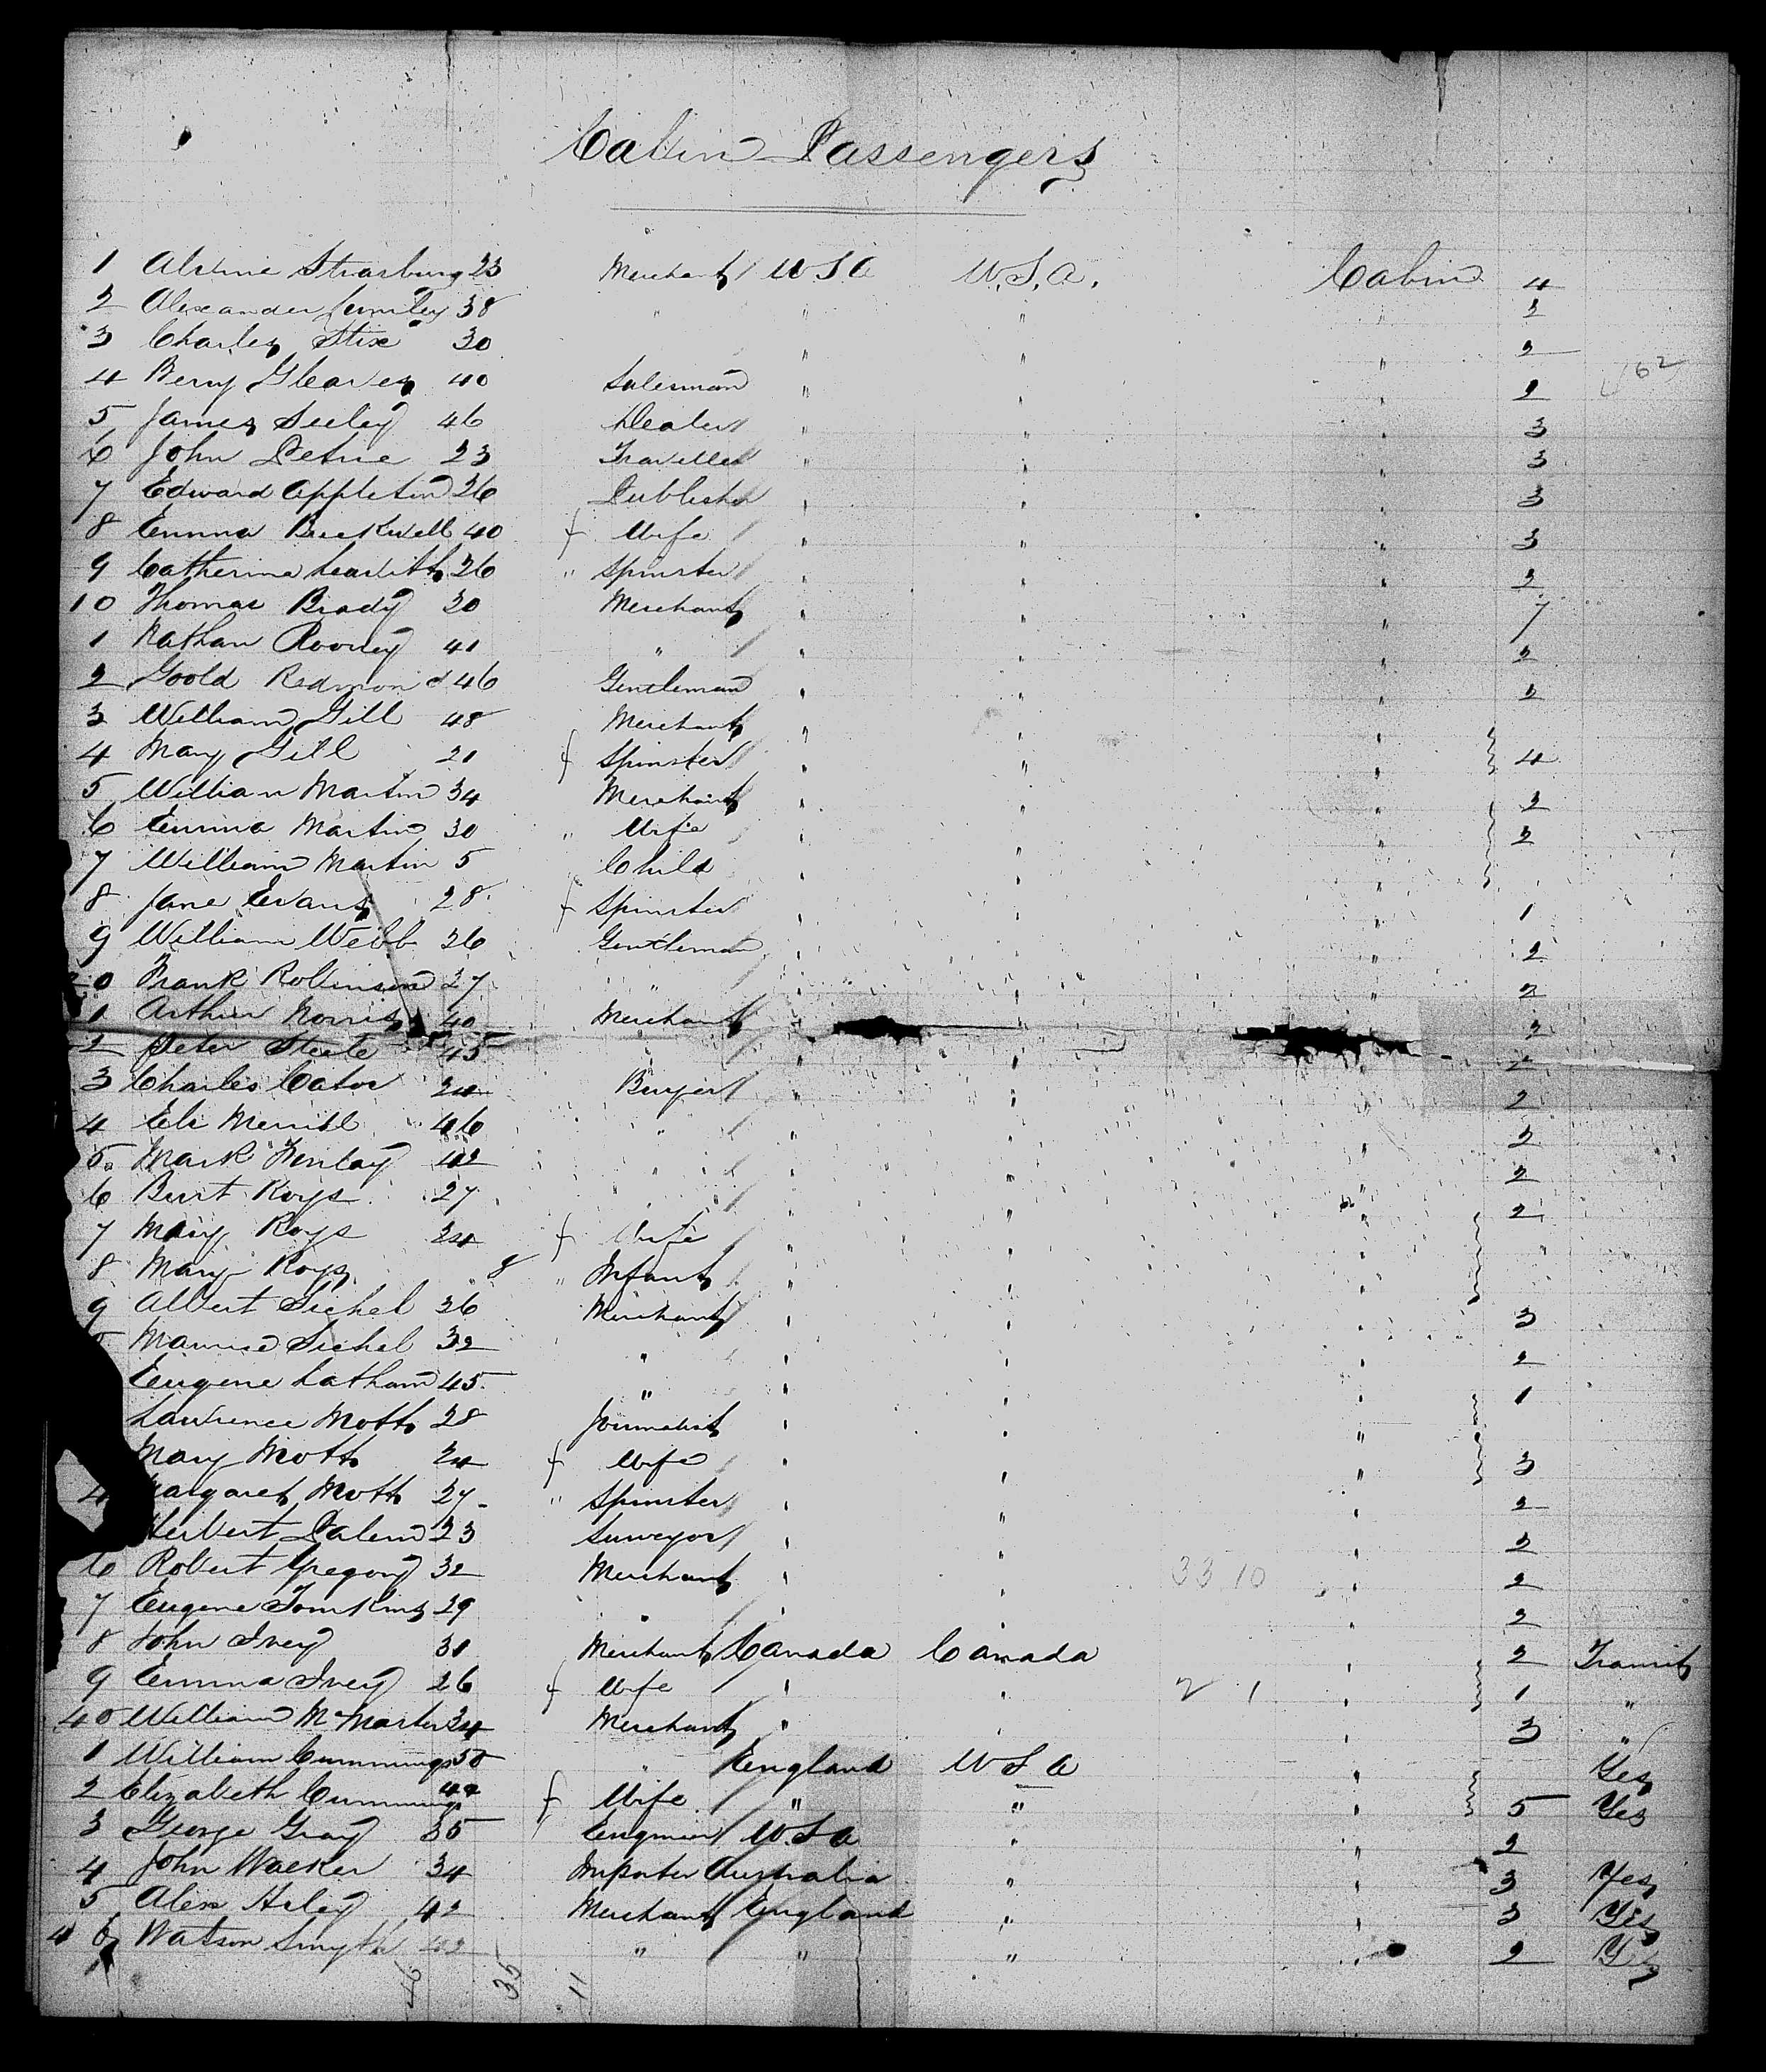 Cabin Passengers
1 Strasburg 23 Merchant U S A U.S.A. Cabin 4
2 Alexander 38 " " " " 2
3 Charles Stix 30 " " " 2
4 Berry Gleaves 40 Salesman " " " 2
62
5 James Seeley 46 Dealer " " " 3
6 John Petrie 23 Traveller " " " 3
7 Edward Appleton 26 Publisher " " " 3
8 Emma Buckwell 40 f Wife " " " 3
9 Catherine 26 " Spinster " " " 2
10 Thomas Brady 30 Merchant " " " 7
1 Nathan Rooney 41 " " " " 2
2 Goold Redmond 46 Gentleman " " " 2
3 William Gill 48 Merchant " " "
4 Mary Gill 21 f Spinster " " " 4
5 William Martin 34 Merchant " " " 2
6 Emma Martin 30 " Wife " " " 2
7 William Martin 5 Child " " "
8 Jane Evans 28 f Spinster " " " 1
9 William Webb 26 Gentleman " " " 2
20 Frank Robinson 27 " " " " 2
1 Arthur Norris 40 Merchant " " 2
2 Peter Steele 45 " " " 2
3 Charles Cator 24 Buyer " " 2
4 Eli Merrill 46 " " " " 2
5 Mark Finlay 42 " " " " 2
6 Burt Roys 27 " " " 2
7 Mary Roys 24 f Wife " " "
8 Mary Roys 8 " Infant " " "
9 Albert Sichel 26 Merchant " " " 3
Maurice Sichel 32 " " " " 2
Eugene Latham 45 " " " " 1
Lawrence Mott 28 Journalist " " "
Mary Mott 24 f Wife " " " 3
4 Margaret Mott 27 " Spinster " " " 2
Herbert 23 Surveyor " " " 2
6 Robert Gregory 32 Merchant " " 33 10 " 2
7 Eugene Tomkins 29 " " " " 2
8 John Ivey 31 Merchant Canada Canada " 2 Transit
9 Emma Ivey 26 f Wife " " 2 1 " 1 "
40 William McMaster 34 Merchant " " " 3 "
1 William Cummings 50 " England U S A " Yes
2 Elizabeth Cummings 44 f Wife " " " 5 Yes
3 George Gray 35 Engineer U.S.A " " 2
4 John Walker 34 Importer Australia " " 3 Yes
5 Alex 42 Merchant England " " 3 Yes
46 Watson Smyth 42 " " " " 2 Yes
46 35 11